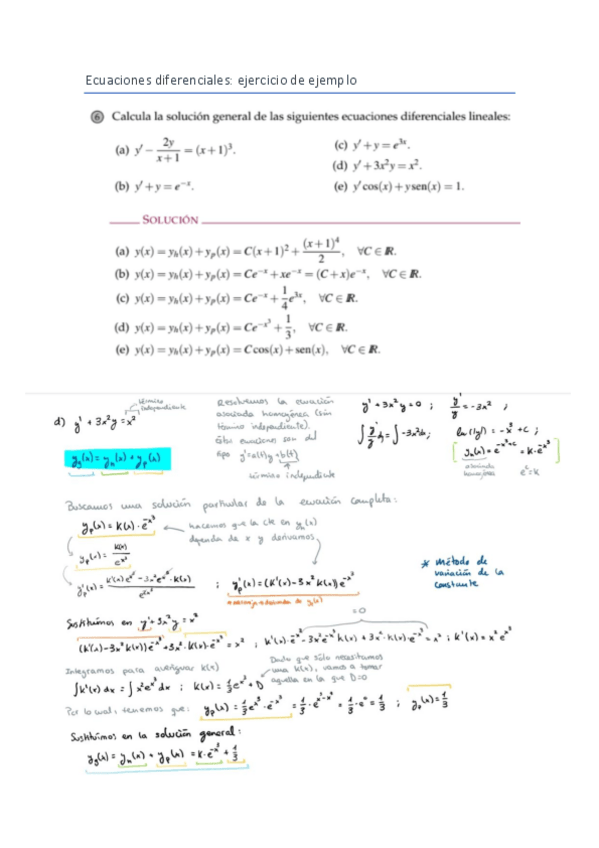 Ecuaciones diferenciales: ejercicio de ejemplo
6 Calcula la solución general de las siguientes ecuaciones diferenciales lineales:
(a) y' − 2y/(x+1) = (x+1)³.
(b) y' + y = e⁻ˣ.
(c) y' + y = e³ˣ.
(d) y' + 3x²y = x².
(e) y' cos(x) + y sen(x) = 1.
SOLUCIÓN
(a) y(x) = yₕ(x) + yₚ(x) = C(x+1)² + (x+1)⁴/2, ∀C ∈ ℝ.
(b) y(x) = yₕ(x) + yₚ(x) = Ce⁻ˣ + xe⁻ˣ = (C+x)e⁻ˣ, ∀C ∈ ℝ.
(c) y(x) = yₕ(x) + yₚ(x) = Ce⁻ˣ + 1/4 e³ˣ, ∀C ∈ ℝ.
(d) y(x) = yₕ(x) + yₚ(x) = Ce^(-x³) + 1/3, ∀C ∈ ℝ.
(e) y(x) = yₕ(x) + yₚ(x) = C cos(x) + sen(x), ∀C ∈ ℝ.
d) y' + 3x²y = x²
término independiente
y_g(x) = y_h(x) + y_p(x)
Resolvemos la ecuación
asociada homogénea (sin
término independiente).
Estas ecuaciones son del
tipo y' = a(t)y + b(t)
término independiente
y' + 3x²y = 0 ; y'/y = -3x² ;
∫ y'/y dy = ∫ -3x² dx ; ln(|y|) = -x³ + C ;
y_h(x) = e^(-x³+C) = K·e^(-x³)
asociada homogénea
e^C = K
Buscamos una solución particular de la ecuación completa:
y_p(x) = K(x)·e^(-x³)
hacemos que la cte en y_h(x)
dependa de x y derivamos
y_p(x) = K(x)/e^(x³)
* Método de
variación de la
constante
y'_p(x) = (K'(x)e^(x³) - 3x²e^(x³)·K(x))/e^(2x³) ; y'_p(x) = (K'(x) - 3x²K(x))e^(-x³)
Sustituimos en y' + 3x²y = x²
=0
(K'(x) - 3x²K(x))e^(-x³) + 3x²·K(x)·e^(-x³) = x² ; K'(x)·e^(-x³) - 3x²e^(-x³)K(x) + 3x²·K(x)·e^(-x³) = x² ; K'(x) = x²e^(x³)
Integramos para averiguar K(x)
Dado que sólo necesitamos
una K(x), vamos a tomar
aquella en la que D=0
∫K'(x) dx = ∫x²e^(x³) dx ; K(x) = 1/3 e^(x³) + D
Por lo cual, tenemos que: y_p(x) = 1/3 e^(x³)·e^(-x³) = 1/3·e^(x³-x³) = 1/3·e⁰ = 1/3 ; y_p(x) = 1/3
Sustituimos en la solución general:
y_g(x) = y_h(x) + y_p(x) = K·e^(-x³) + 1/3